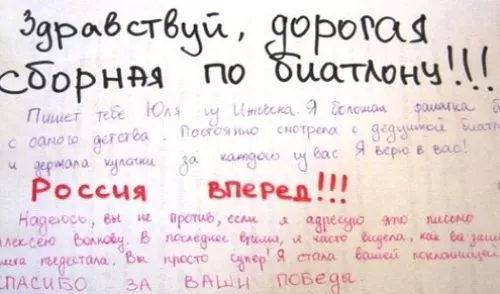 Здравствуй, дорогая
сборная по биатлону!!!
Пишет тебе Юля из Ижевска. Я большая фанатка б
с самого детства. Постоянно смотрела с дедушкой биат
и держала кулачки за каждого из вас. Я верю в вас!
Россия вперед!!!
Надеюсь, вы не против, если я адресую это письмо
лексею Волкову. В последнее время, я часто видела, как вы
пьедестала. Вы просто супер! Я стала вашей поклонницей
СПАСИБО ЗА ВАШИ ПОБЕДЫ.